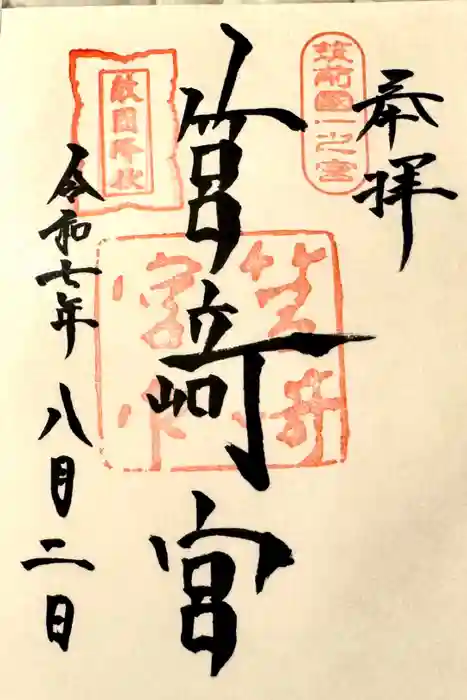 奉拝
筑前國一之宮
筥崎宮
敵国降伏
令和七年 八月二日